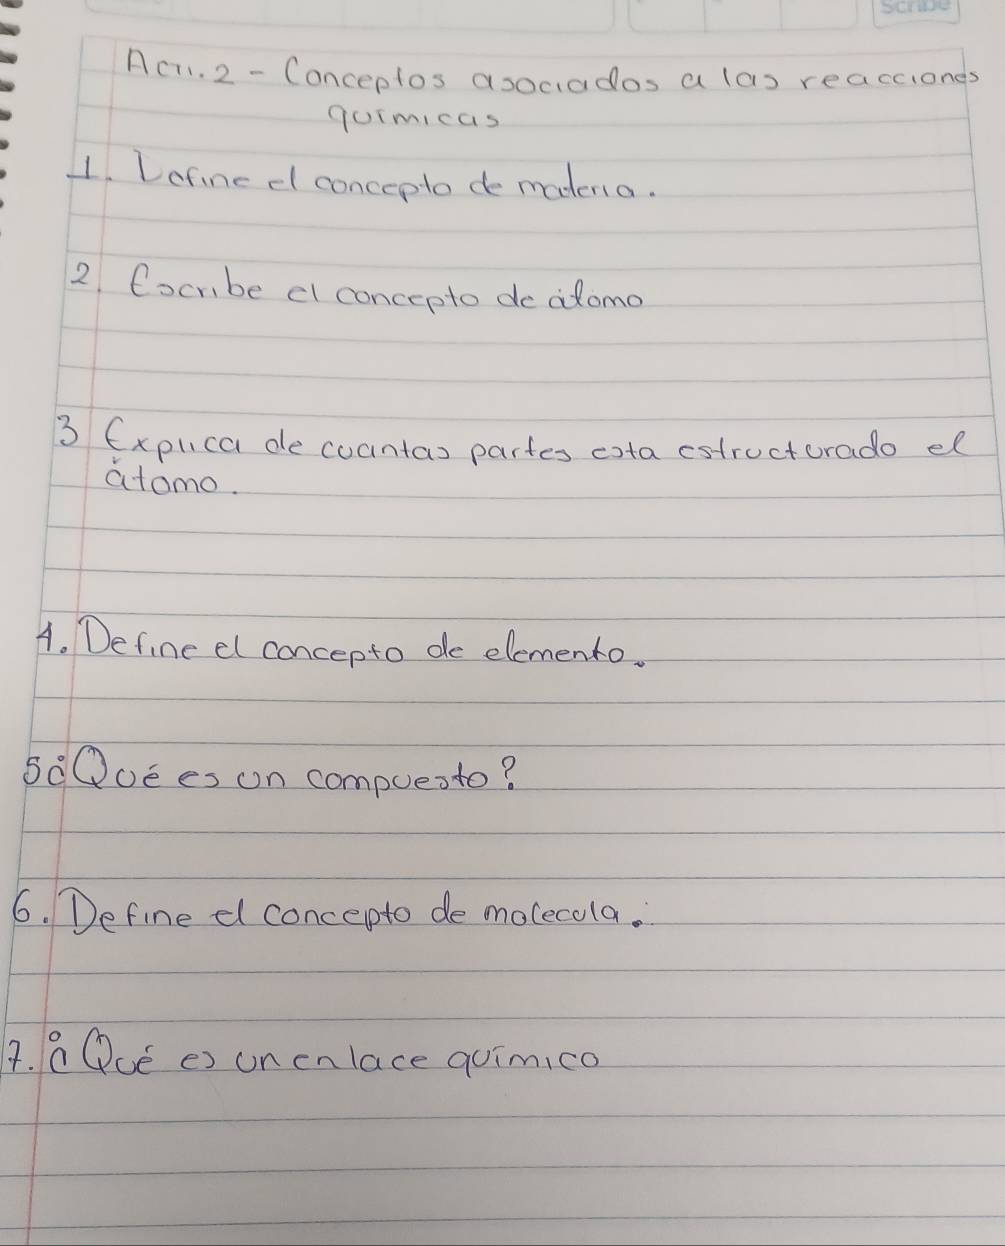 Scribe
Acti. 2 - Conceptos asociados a las reacciones
químicas
1. Define el concepto de materia.
2. Escribe el concepto de átomo
3 Explica de cuantas partes esta estructurado el
átomo.
4. Define el concepto de elemento.
5 ¿Qué es un compuesto?
6. Define el concepto de molecula.
7. ¿Qué es un enlace químico